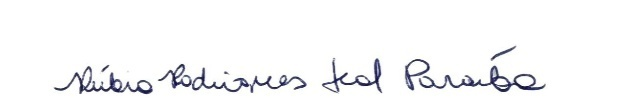 Núbia Rodrigues Paraíba